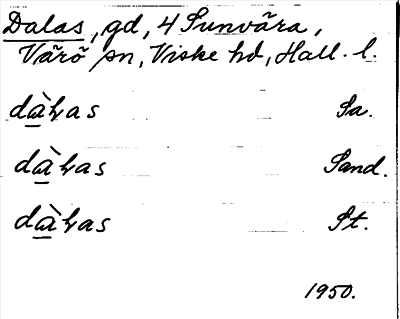 Dalas, gd, 4 Sunvära,
Värö sn, Viske hd, Hall. l.
dàɫas Sa.
dàɫas Sand.
dàɫas St.
1950.